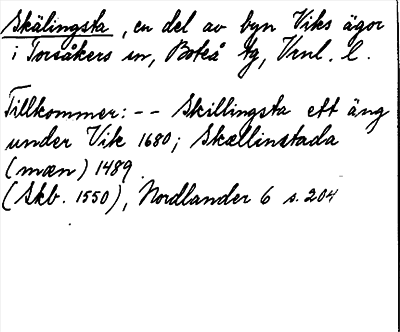 Skälingsta, en del av byn Viks ägor
i Torsåkers sn, Boteå tg, Vrnl. l.
Tillkommer: -- Skillingsta ett äng
under Vik 1680; Skællinstada
(mæn) 1489.
(Skb. 1550), Nordlander 6 s. 204